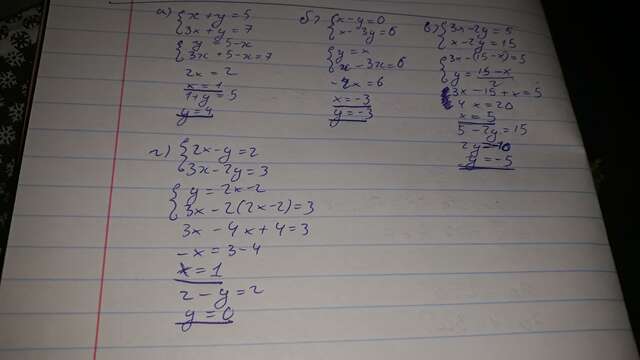 а) { x + y = 5
3x + y = 7
{ y = 5 - x
3x + 5 - x = 7
2x = 2
x = 1
1 + y = 5
y = 4
б) { x - y = 0
x - 3y = 6
{ y = x
x - 3x = 6
-2x = 6
x = -3
y = -3
в) { 3x - 2y = 5
x - 2y = 15
{ 3x - (15 - x) = 5
y = 15 - x / 2
3x - 15 + x = 5
4x = 20
x = 5
5 - 2y = 15
2y = -10
y = -5
г) { 2x - y = 2
3x - 2y = 3
{ y = 2x - 2
3x - 2(2x - 2) = 3
3x - 4x + 4 = 3
-x = 3 - 4
x = 1
2 - y = 2
y = 0